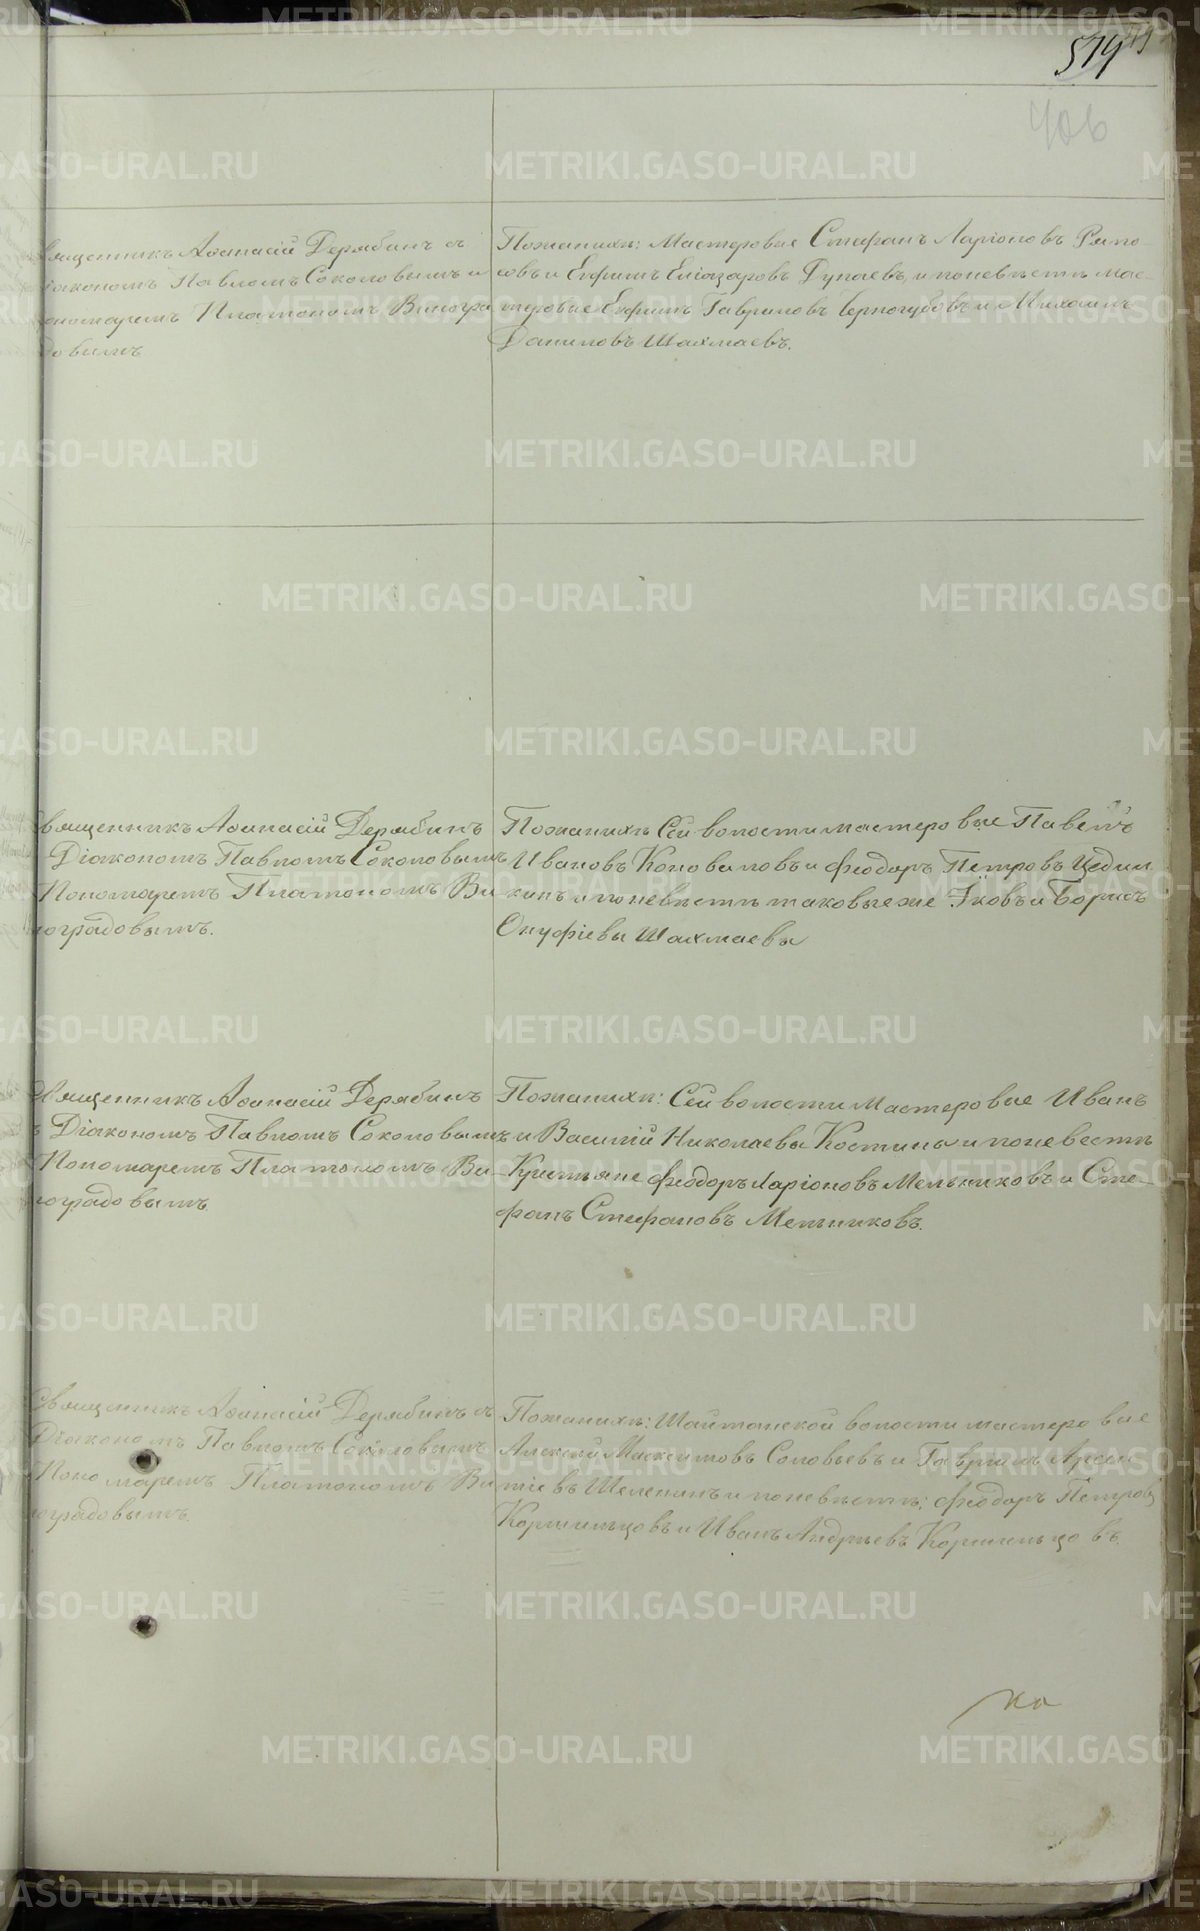 574
406
Священникъ Аѳанасій Дерябинъ съ
Діакономъ Павломъ Соколовымъ и
Пономаремъ Платономъ Виногра
довымъ
Поженихѣ: Мастеровые Стефанъ Ларіоновъ
совъ и Евфимъ Еліазаровъ Дунаевъ, и поневѣстѣ мас-
теровые Евфимъ Гавриловъ Черногубовъ и Михаилъ
Даниловъ Шахмаевъ.
Священникъ Аѳанасій Дерябинъ
Діакономъ Павломъ Соколовымъ
Пономаремъ Платономъ Ви
ноградовымъ.
Поженихѣ Сей волости мастеровые Павелъ
Ивановъ Коноваловъ и Феодоръ Петровъ Цедил
кинъ и поневѣстѣ таковые же Іковъ и Борисъ
Онуфріевы Шахмаевы
Священникъ Аѳанасій Дерябинъ
ъ Діакономъ Павломъ Соколовымъ
Пономаремъ Платономъ Ви
ноградовымъ
Поженихѣ: Сей волости Мастеровые Иванъ
и Василій Николаевы Костины и поневестѣ
Крестьяне Феодоръ Ларіоновъ Мельниковъ и Сте-
фанъ Стефановъ Мельниковъ.
Священникъ Аѳанасій Дерябинъ съ
Діакономъ Павломъ Соколовымъ
Пономаремъ Платономъ Ви
ноградовымъ.
Поженихѣ: Шайтанской волости мастеровые
Алексѣй Максимовъ Соловьевъ и Гавриилъ Арсен
тіевъ Шелепинъ и поневѣстѣ: Феодоръ Петровъ
Кормильцовъ и Иванъ Андреевъ Кормильцовъ
METRIKI.GASO-URAL.RU